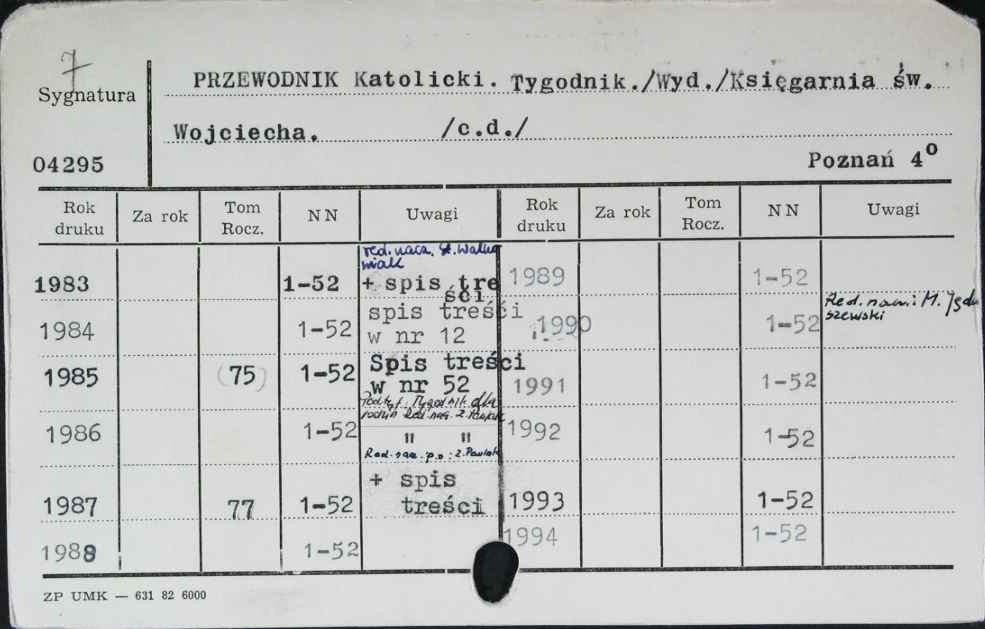 7
Sygnatura
PRZEWODNIK Katolicki. Tygodnik./Wyd./Księgarnia św.
Wojciecha. /c.d./
04295
Poznań 4⁰
Rok druku Za rok Tom Rocz. NN Uwagi Rok druku Za rok Tom Rocz. NN Uwagi
red. nacz.
1983 1-52 + spis treści
1984 1-52 spis treści w nr 12
1985 (75) 1-52 Spis treści w nr 52
Podtyt. Tygodnik dla
rodzin Red. nacz. Z. Pawlak
1986 1-52 " "
Red. nac. p.o.: Z. Pawlak
1987 77 1-52 + spis treści
1988 1-52
1989 1-52
1990 1-52 Red. nacz.: M.
1991 1-52
1992 1-52
1993 1-52
1994 1-52
ZP UMK — 631 82 6000